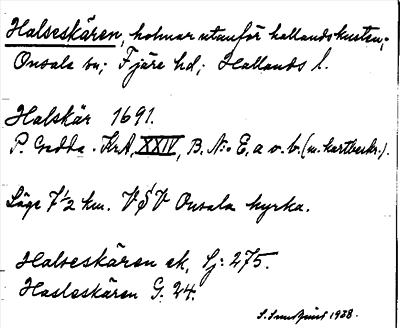 Halseskären, holmar utanför hallandskusten,
Onsala sn; Fjäre hd; Hallands l.
Halskär 1691.
P. Gedda. KrA, XXIV, B. No E, a o. b. (m. kartbeskr.).
Läge 7½ km. VSV Onsala kyrka.
Halseskären ek, Sj: 275.
Hasleskären G. 24.
1928.